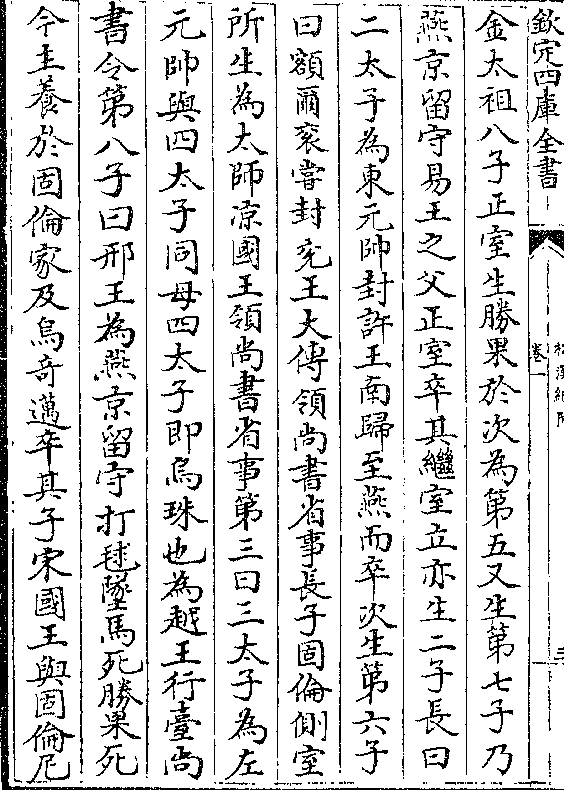 欽定四庫全書
卷一
三
金太祖八子正室生勝果於次為第五又生第七子乃
燕京留守易王之父正室卒其繼室立亦生二子長曰
二太子為東元帥封許王南歸至燕而卒次生第六子
曰額爾袞嘗封兖王大傅領尚書省事長子固倫側室
所生為太師凉國王領尚書省事第三曰三太子為左
元帥與四太子同母四太子即烏珠也為越王行臺尚
書令第八子曰邢王為燕京留守打毬墜馬死勝果死
今主養於固倫家及烏奇邁卒其子宋國王與固倫尼